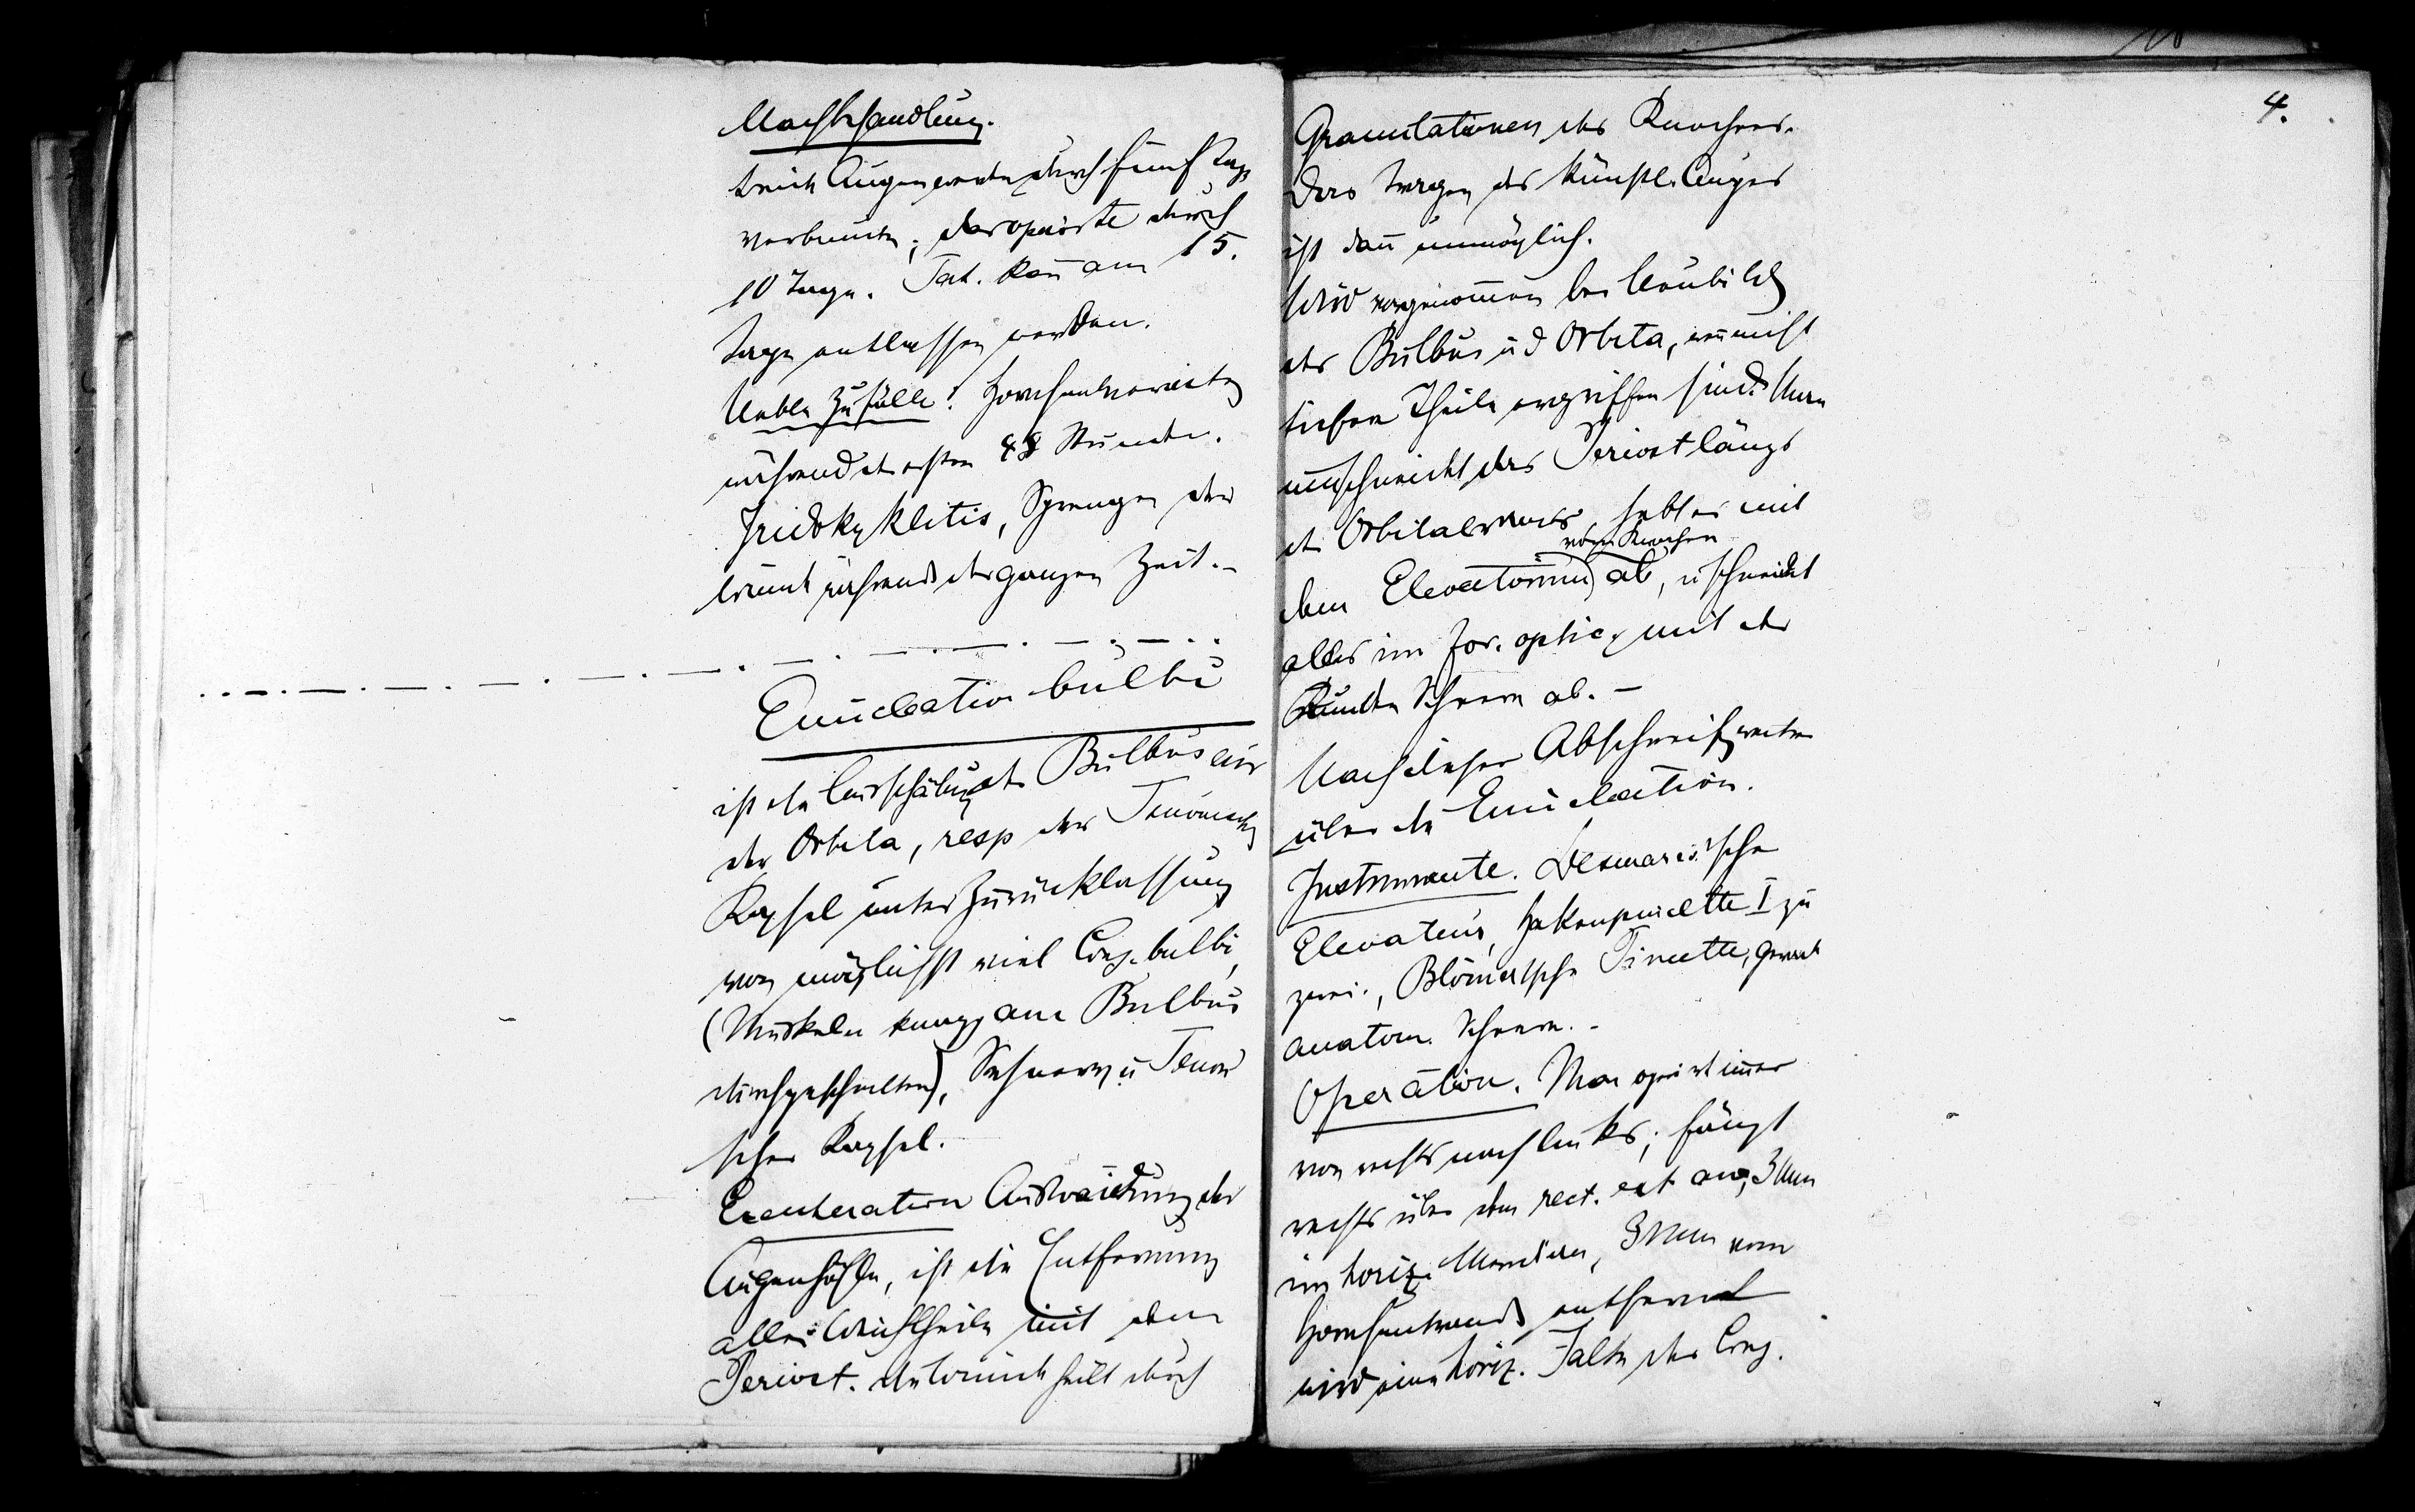 Nachbehandlung.
beide Augen werden durch fünf Tage
verbunden; das operirte durch
10 Tage. Pat. kañ am 15.
Tage entlassen werden.
Ueble Zufälle: Hornhautvereiterg
während der ersten 48 Stunden.
Iridokyklitis, Sprengen der
Wunde während der ganzen Zeit. –
Enucleatio bulbi
ist die Ausschälung des Bulbus aus
der Orbita, resp der Tenonschen
Kapsel unter Zurücklassung
von möglichst viel Conj. bulbi,
(Muskeln knapp am Bulbus
durchgeschnitten), Sehnerv u Tenon
scher Kapsel.
Exenteration Ausweidung der
Augenhöhle, ist die Entfernung
aller Weichtheile mit dem
Periost. die Wunde heilt durch
4.
Granulationen des Knochens.
Das Tragen des künstl. Auges
ist dañ unmöglich.
Wird vorgenom̄en bei Neubildg
des Bulbus ud Orbita, weñ
tiefere Theile ergriffen sind. Man
umschneidet das Periost längs
des Orbitalrands, hebt es mit
vom Knochen
dem Elevatorium ab, u schneidet
alles im for. optic. mit der
Runden Scheere ab. –
Nach dieser Abschweifg weiter
über die Enucleation.
Instrumente. Desmares'sche
Elevateur, Hakenpincette I zu
zwei., Blömer'sche Pincette, Gerade
anatom. Scheere. –
Operation. Man operirt im̄er
von rechts nach links; fängt
rechts über dem rect. ext an, 3 Mm
im horiz. Meridian, 3 Mm vom
Hornhautrand entfernt
wird eine horiz. Falte der Conj.